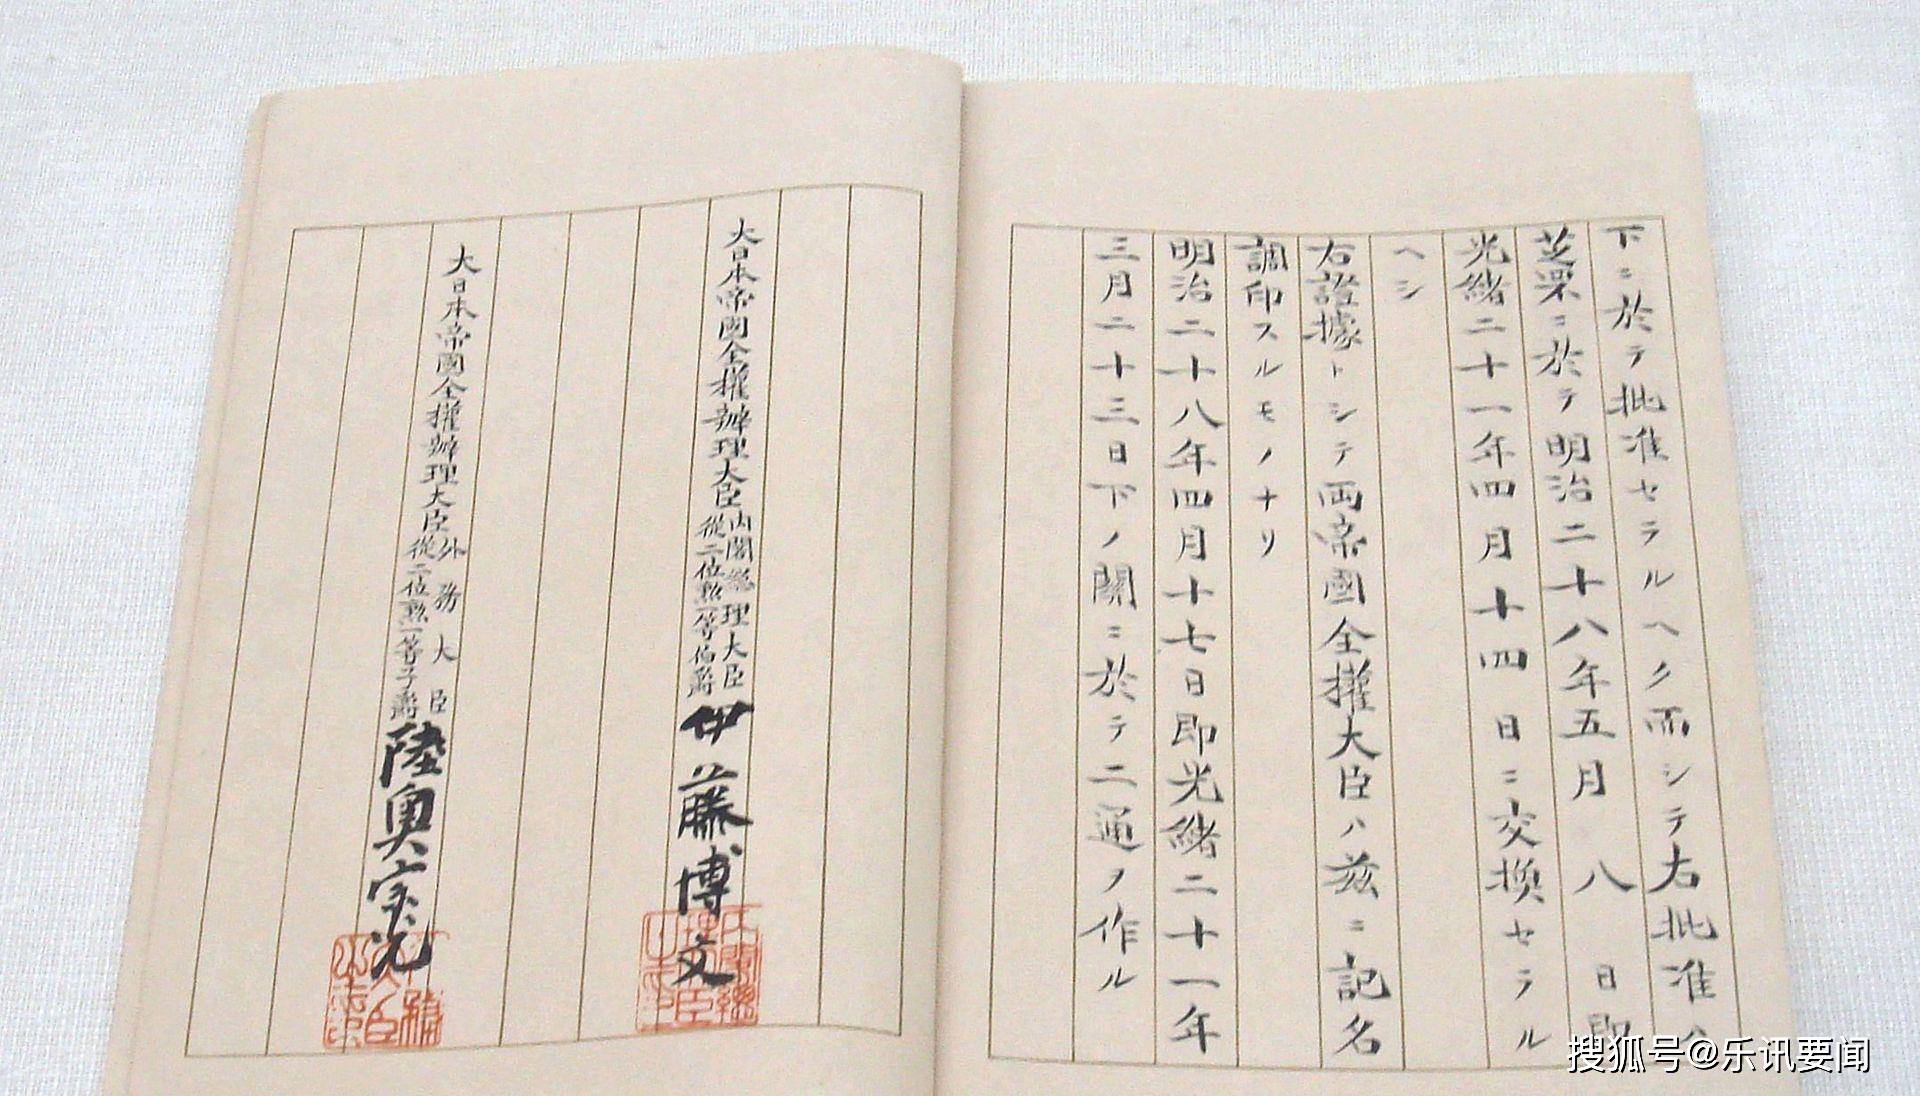 下ニ於テ批准セラルヘク而シテ右批准ハ
芝罘ニ於テ明治二十八年五月八日即
光緒二十一年四月十四日ニ交換セラル
ヘシ
右證據トシテ両帝國全權大臣ハ茲ニ記名
調印スルモノナリ
明治二十八年四月十七日即光緒二十一年
三月二十三日下ノ關ニ於テ二通ヲ作ル
大日本帝國全權辦理大臣內閣總理大臣從二位勲一等伯爵伊藤博文
大日本帝國全權辦理大臣外務大臣從二位勲一等子爵陸奥宗光
搜狐号@乐讯要闻